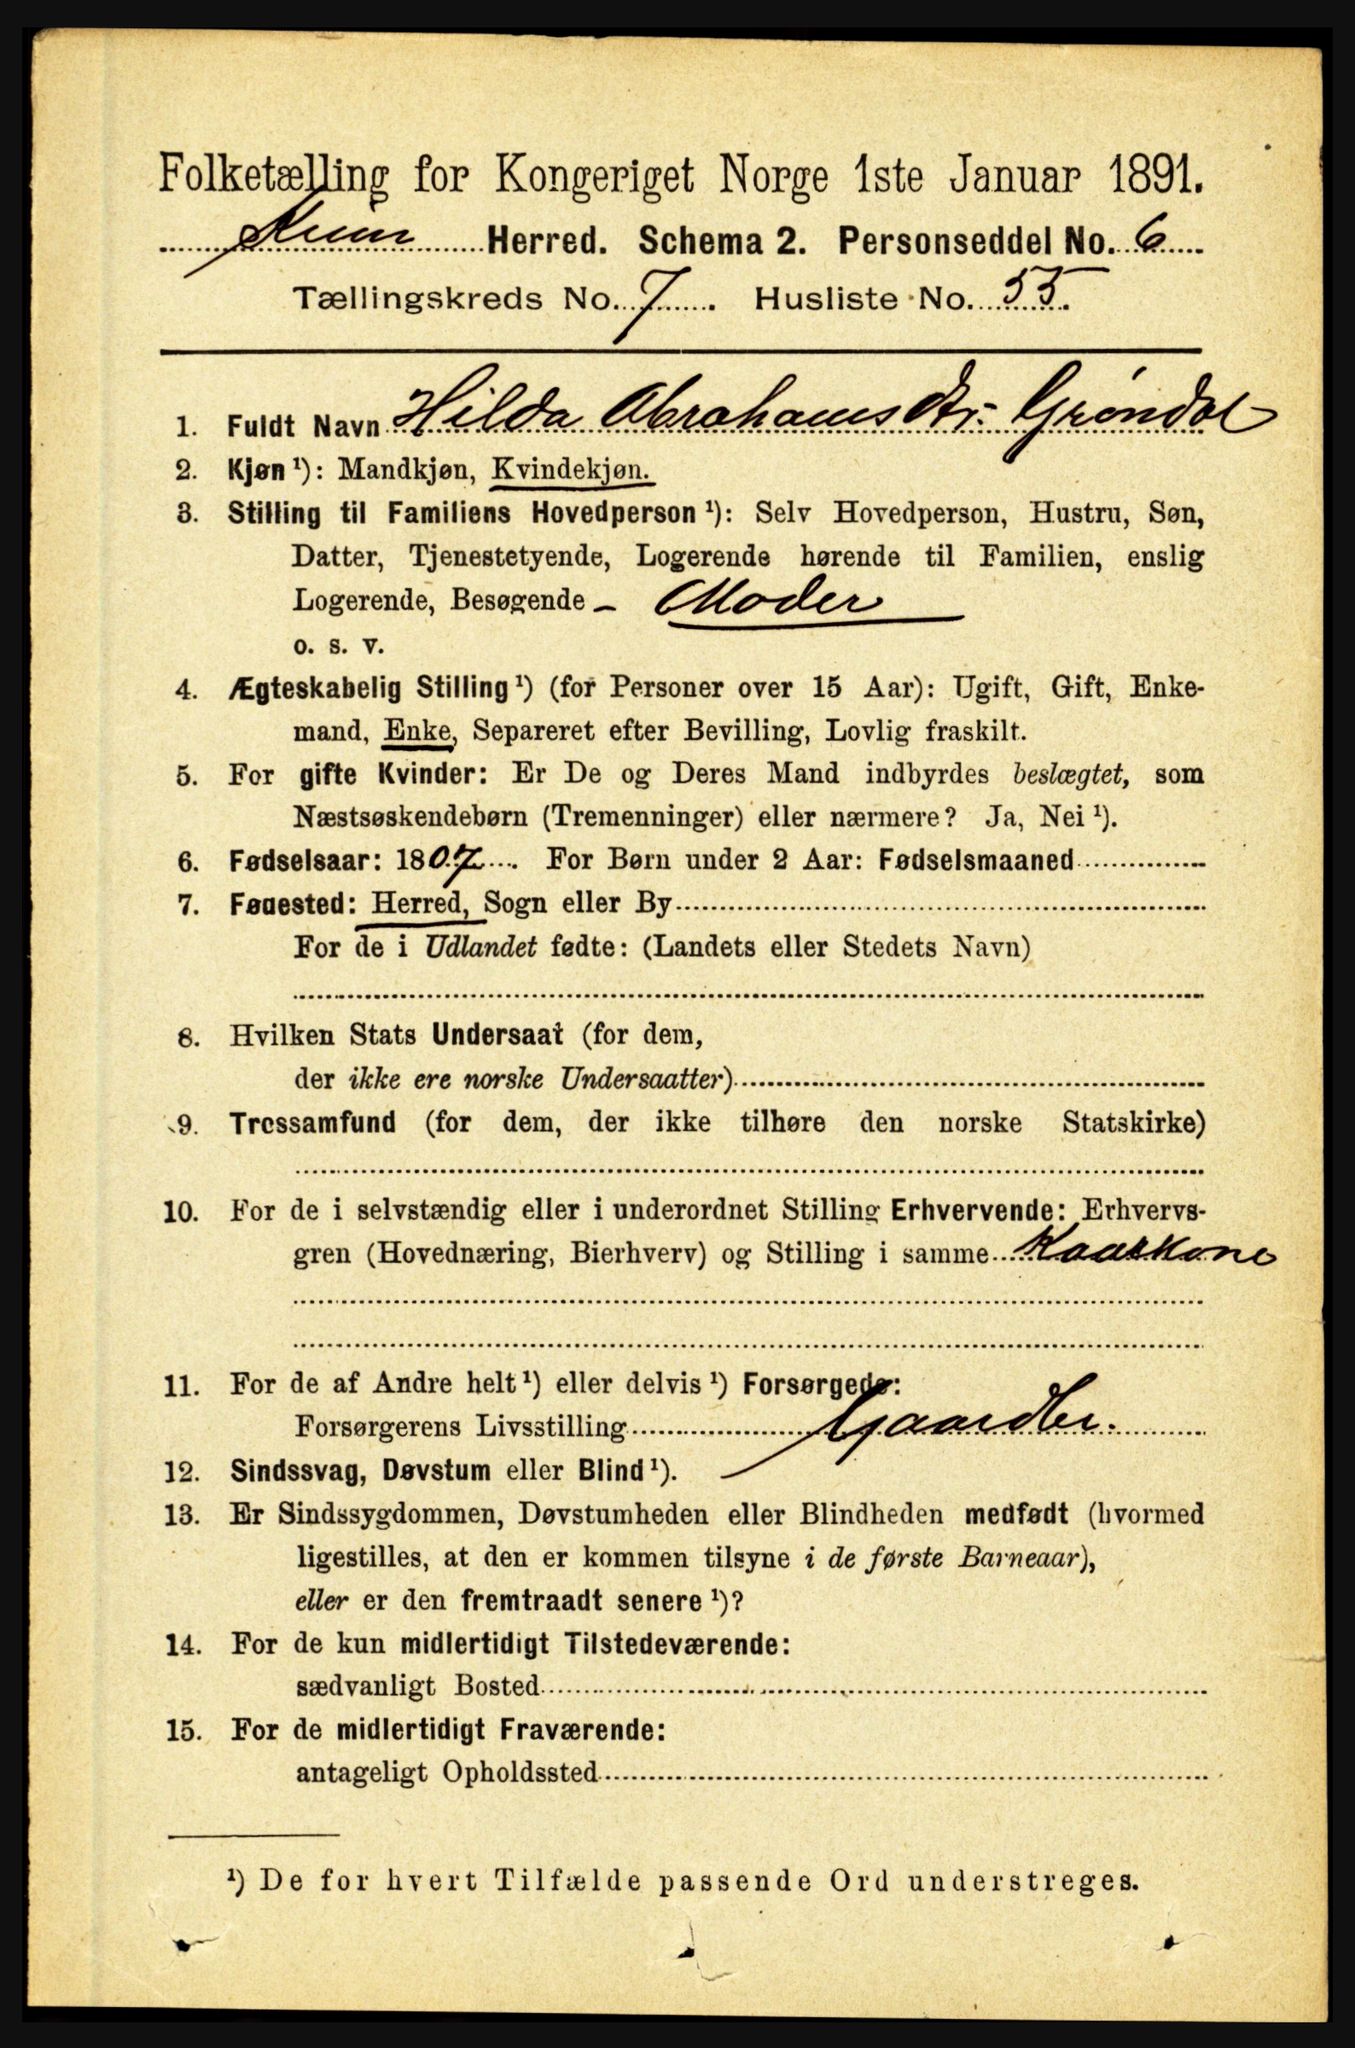 Folketælling for Kongeriget Norge 1ste Januar 1891.
Kinn Herred. Schema 2. Personseddel No. 6
Tællingskreds No. 7. Husliste No. 55.
1. Fuldt Navn Hilda Abrahams dtr. Grøndal
2. Kjøn ¹): Mandkjøn, Kvindekjøn.
3. Stilling til Familiens Hovedperson ¹): Selv Hovedperson, Hustru, Søn,
Datter, Tjenestetyende, Logerende hørende til Familien, enslig
Logerende, Besøgende – Moder
o. s. v.
4. Ægteskabelig Stilling ¹) (for Personer over 15 Aar): Ugift, Gift, Enke-
mand, Enke, Separeret efter Bevilling, Lovlig fraskilt.
5. For gifte Kvinder: Er De og Deres Mand indbyrdes beslægtet, som
Næstsøskendebørn (Tremenninger) eller nærmere? Ja, Nei ¹).
6. Fødselsaar: 1807. For Børn under 2 Aar: Fødselsmaaned
7. Fødested: Herred, Sogn eller By
For de i Udlandet fødte: (Landets eller Stedets Navn)
8. Hvilken Stats Undersaat (for dem,
der ikke ere norske Undersaatter)
9. Trossamfund (for dem, der ikke tilhøre den norske Statskirke)
10. For de i selvstændig eller i underordnet Stilling Erhvervende: Erhvervs-
gren (Hovednæring, Bierhverv) og Stilling i samme Kaarkone
11. For de af Andre helt ¹) eller delvis ¹) Forsørgede:
Forsørgerens Livsstilling Gaardbr.
12. Sindssvag, Døvstum eller Blind ¹).
13. Er Sindssygdommen, Døvstumheden eller Blindheden medfødt (hvormed
ligestilles, at den er kommen tilsyne i de første Barneaar),
eller er den fremtraadt senere ¹)?
14. For de kun midlertidigt Tilstedeværende:
sædvanligt Bosted
15. For de midlertidigt Fraværende:
antageligt Opholdssted
¹) De for hvert Tilfælde passende Ord understreges.